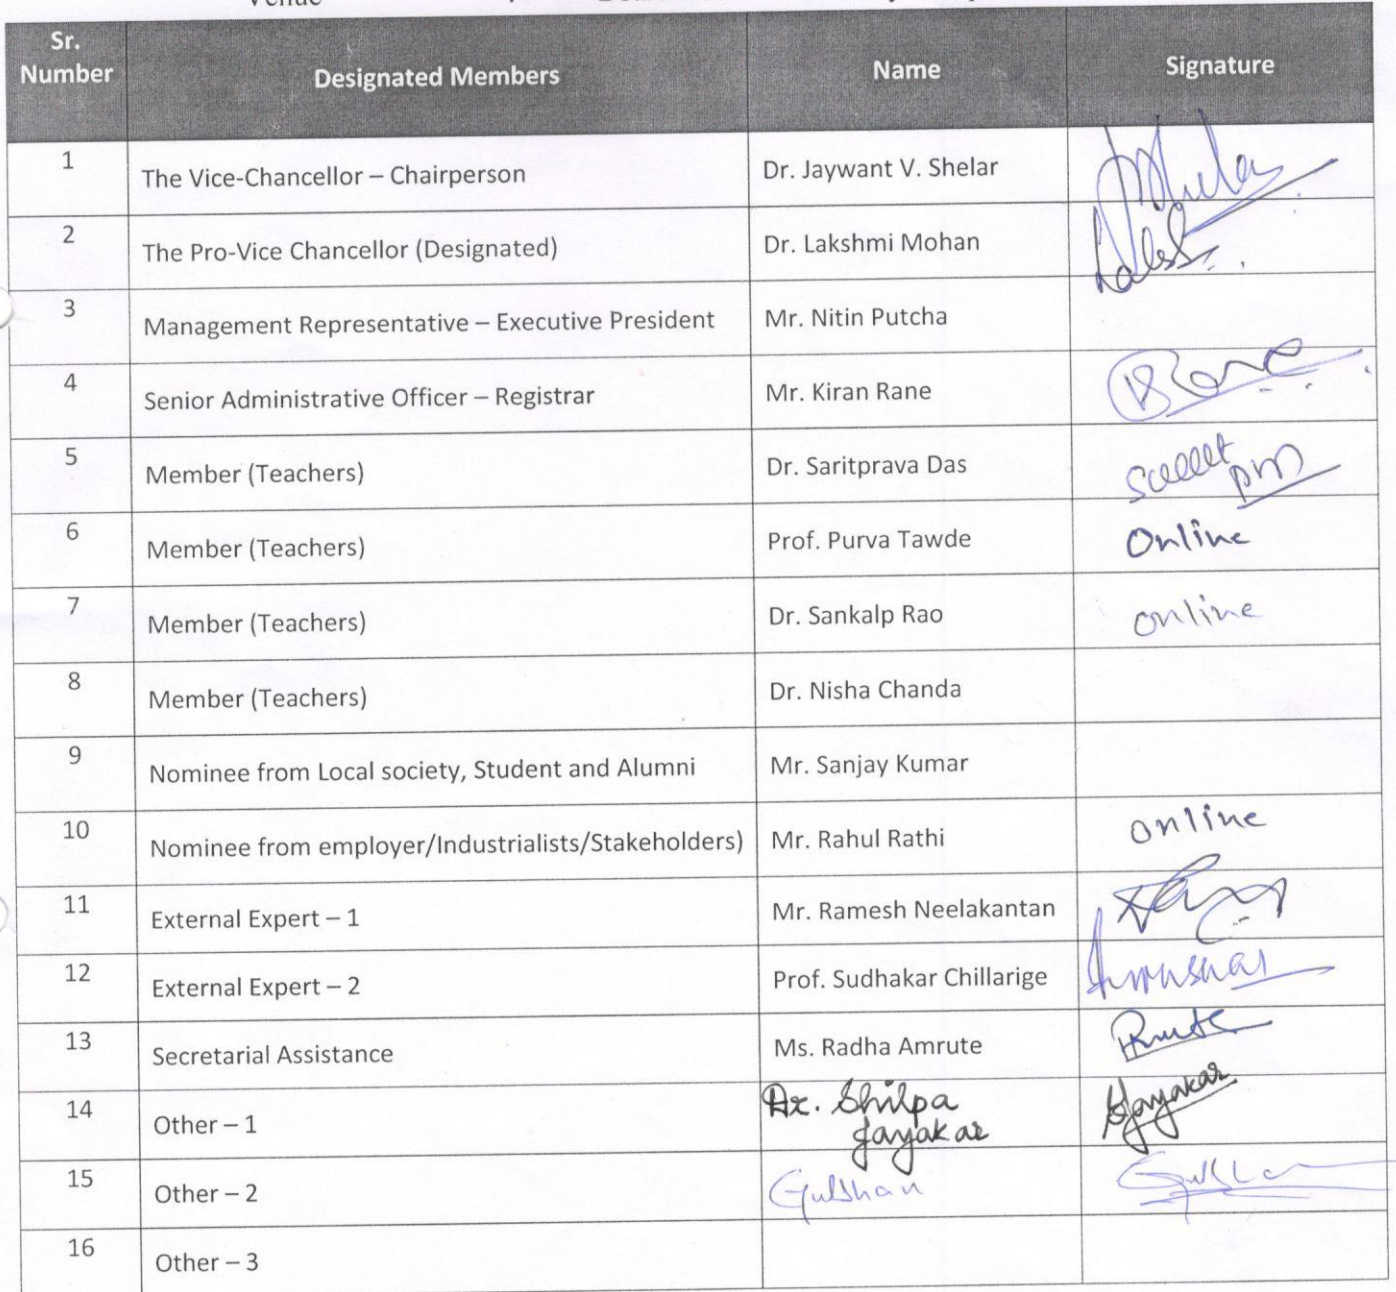 Venue
Sr. Number Designated Members Name Signature
1 The Vice-Chancellor – Chairperson Dr. Jaywant V. Shelar
2 The Pro-Vice Chancellor (Designated) Dr. Lakshmi Mohan
3 Management Representative – Executive President Mr. Nitin Putcha
4 Senior Administrative Officer – Registrar Mr. Kiran Rane Rane
5 Member (Teachers) Dr. Saritprava Das
6 Member (Teachers) Prof. Purva Tawde Online
7 Member (Teachers) Dr. Sankalp Rao online
8 Member (Teachers) Dr. Nisha Chanda
9 Nominee from Local society, Student and Alumni Mr. Sanjay Kumar
10 Nominee from employer/Industrialists/Stakeholders) Mr. Rahul Rathi online
11 External Expert – 1 Mr. Ramesh Neelakantan
12 External Expert – 2 Prof. Sudhakar Chillarige
13 Secretarial Assistance Ms. Radha Amrute
14 Other – 1 Dr. Shilpa Jayakar
15 Other – 2 Gulshan
16 Other – 3